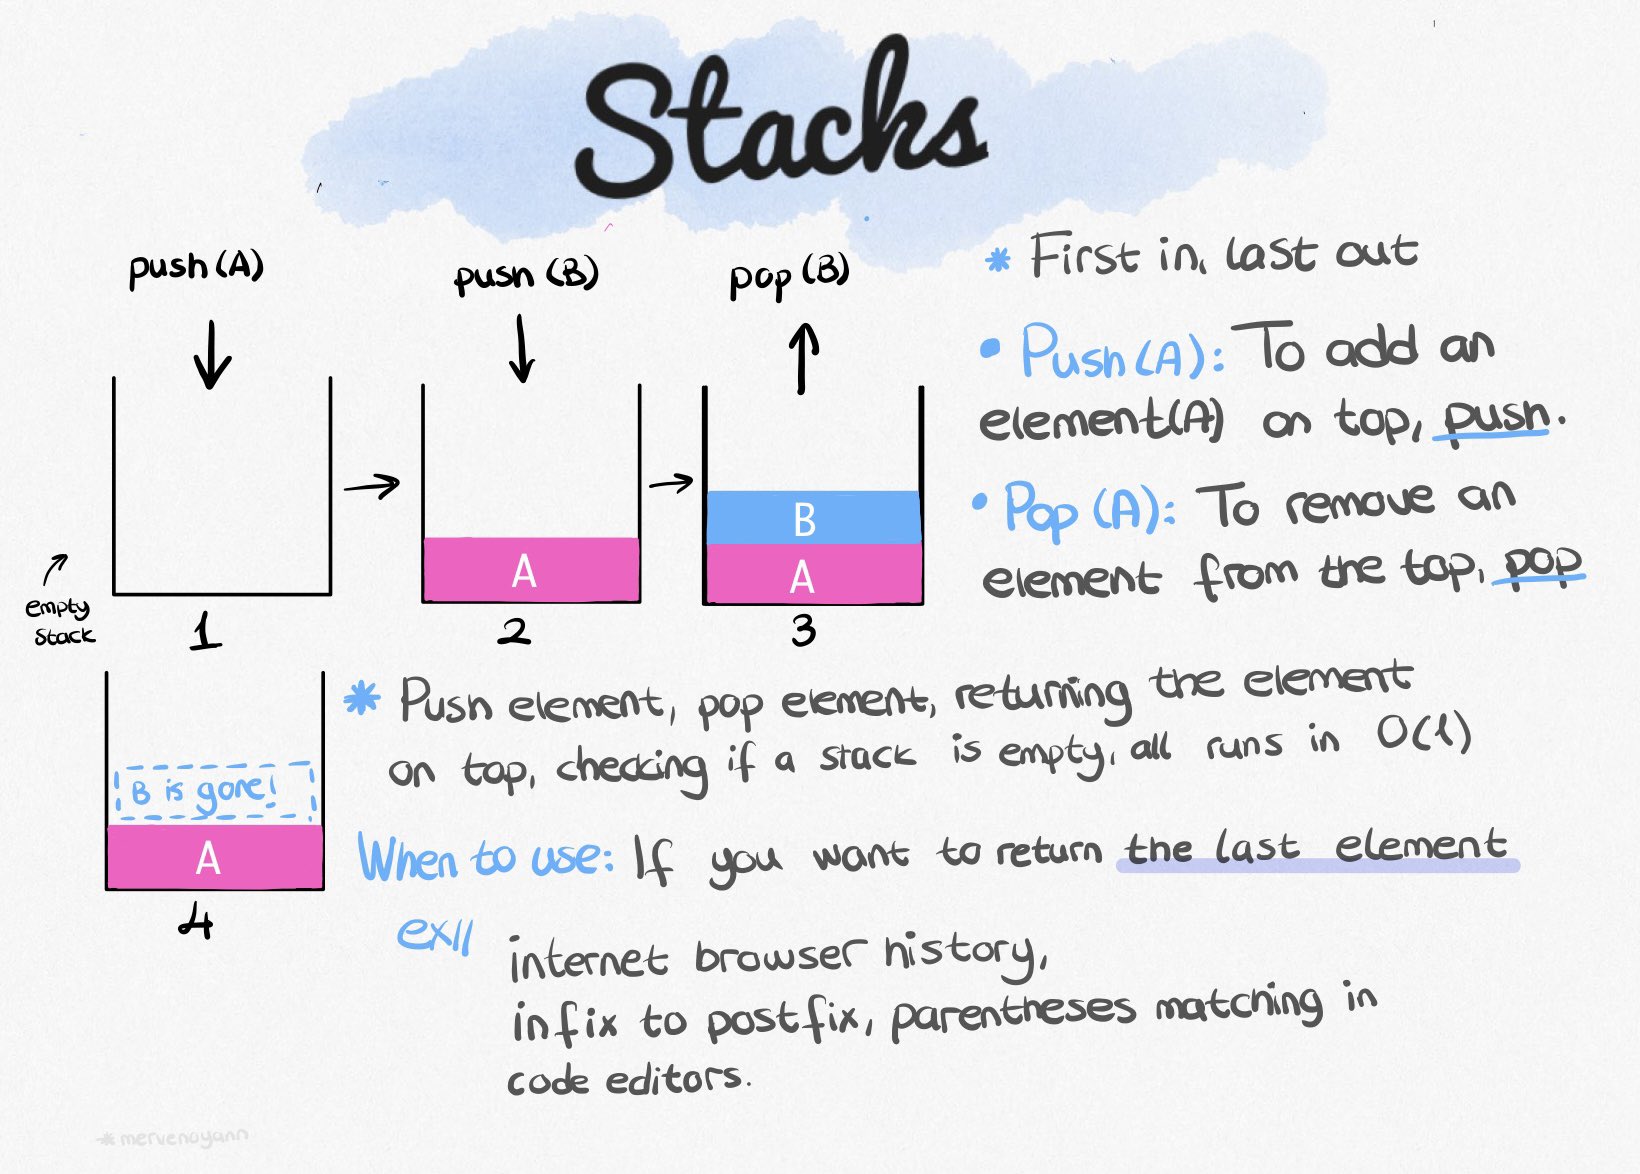 Stacks
push(A)
push (B)
pop (B)
* First in, last out
• Push(A): To add an
element(A) on top, push.
• Pop (A): To remove an
element from the top, pop
B
A
A
A
empty
stack
1
2
3
B is gone!
A
4
* Push element, pop element, returning the element
on top, checking if a stack is empty, all runs in O(1)
When to use: If you want to return the last element
ex//
internet browser history,
infix to postfix, parentheses matching in
code editors.
*mervenoyann